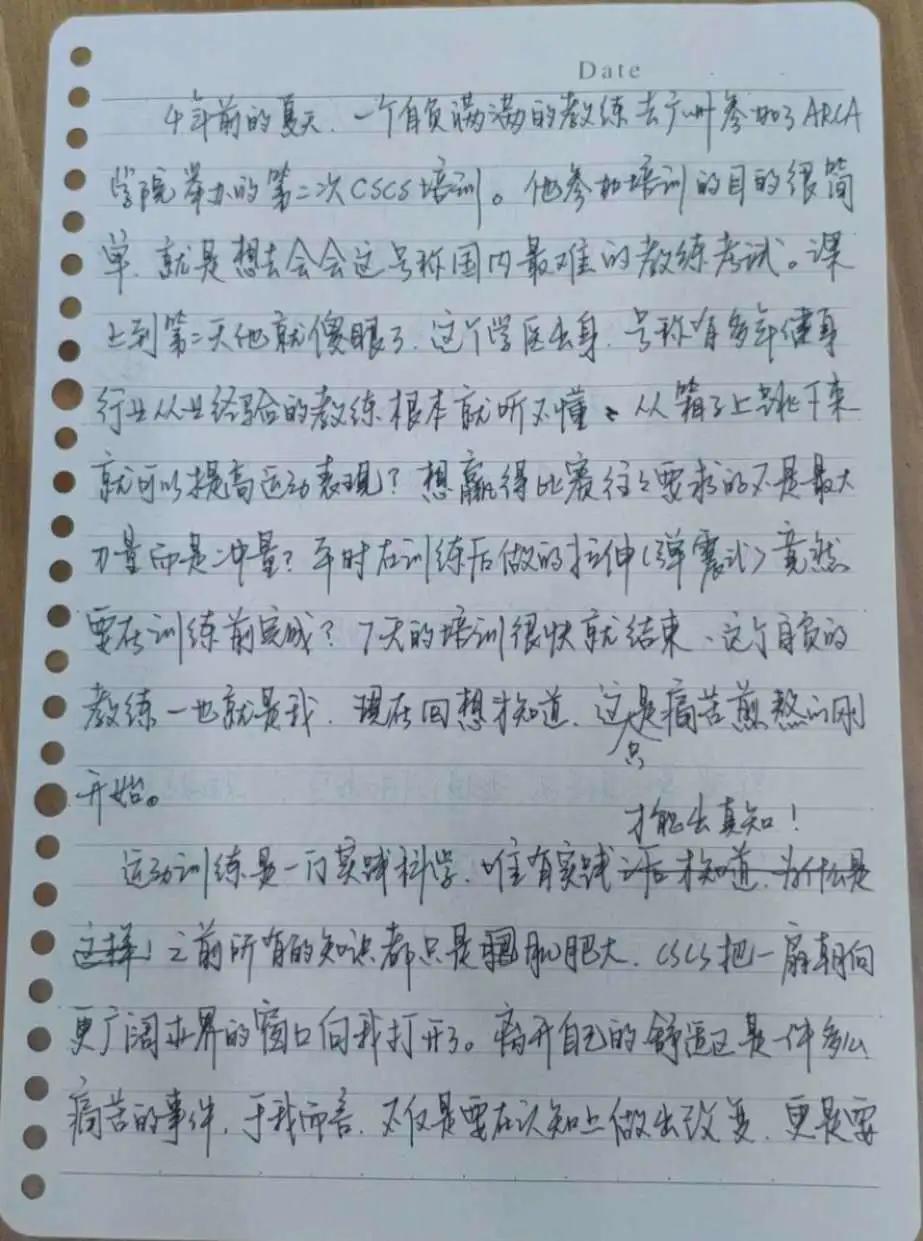 Date
4年前的夏天、一个自负满满的教练去广州参加了ARCA
学院举办的第二次CSCS培训。他参加培训的目的很简
单、就是想去会会这号称国内最难的教练考试。课
上到第二天他就傻眼了、这个学医出身、号称有多年健身
行业从业经验的教练根本就听不懂、从箱子上跳下来
就可以提高运动表现？想赢得比赛往往要求的不是最大
力量而是冲量？平时在训练后做的拉伸（弹震式）竟然
要在训练前完成？7天的培训很快就结束、这个自负的
教练一也就是我、现在回想才知道、这只是痛苦煎熬的刚
开始。
才能出真知！
运动训练是一门实践科学、唯有实践之后才知道、为什么是
这样！之前所有的知识都只是肌肥大、CSCS把一扇朝向
更广阔世界的窗口向我打开了。离开自己的舒适区是一件多么
痛苦的事件、于我而言、不仅是要在认知上做出改变、更是要